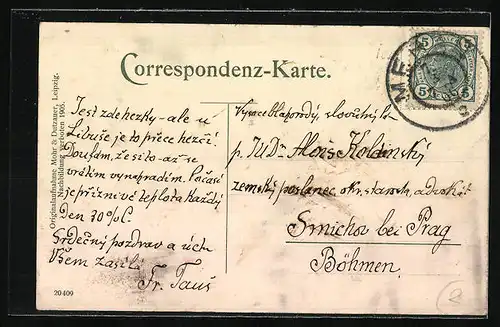 Correspondenz-Karte.
Originalaufnahme Mohr & Dutzauer, Leipzig.
Nachbildung verboten 1905.
Jest zde hezky - ale u
Libuše je to přece hezčí.
Doufám, že si to - až
vynahradím. Počasí
je příznivé teplota každý
den 30% C.
Srdečný pozdrav a úctu
Všem zasílá
Fr. Tauš
20409
p. JUDr Alois Kolánský
zemský poslanec, okr. starosta, advokát
Smichov bei Prag
Böhmen.
5 5
5 5
ME
2